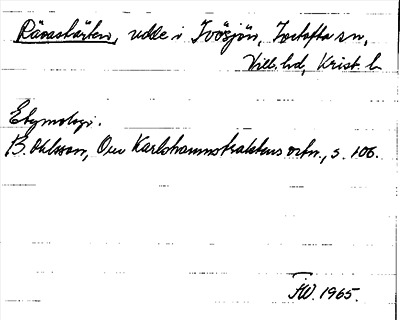 Rävastärten, udde i Ivösjön, Ivetofta sn,
Vill. hd, Krist. l.
Etymologi.
B. Ohlsson, Om Karlshamnstraktens ortn., s. 106.
FW. 1965.